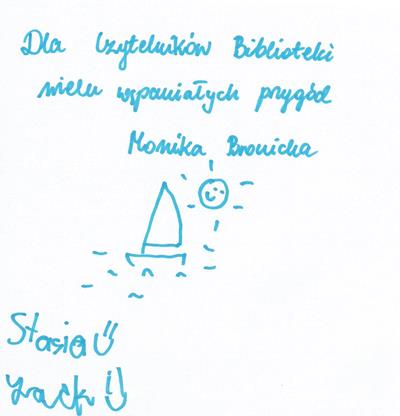 Dla Czytelników Biblioteki
wielu wspaniałych przygód
Monika Bronicka
Stasia